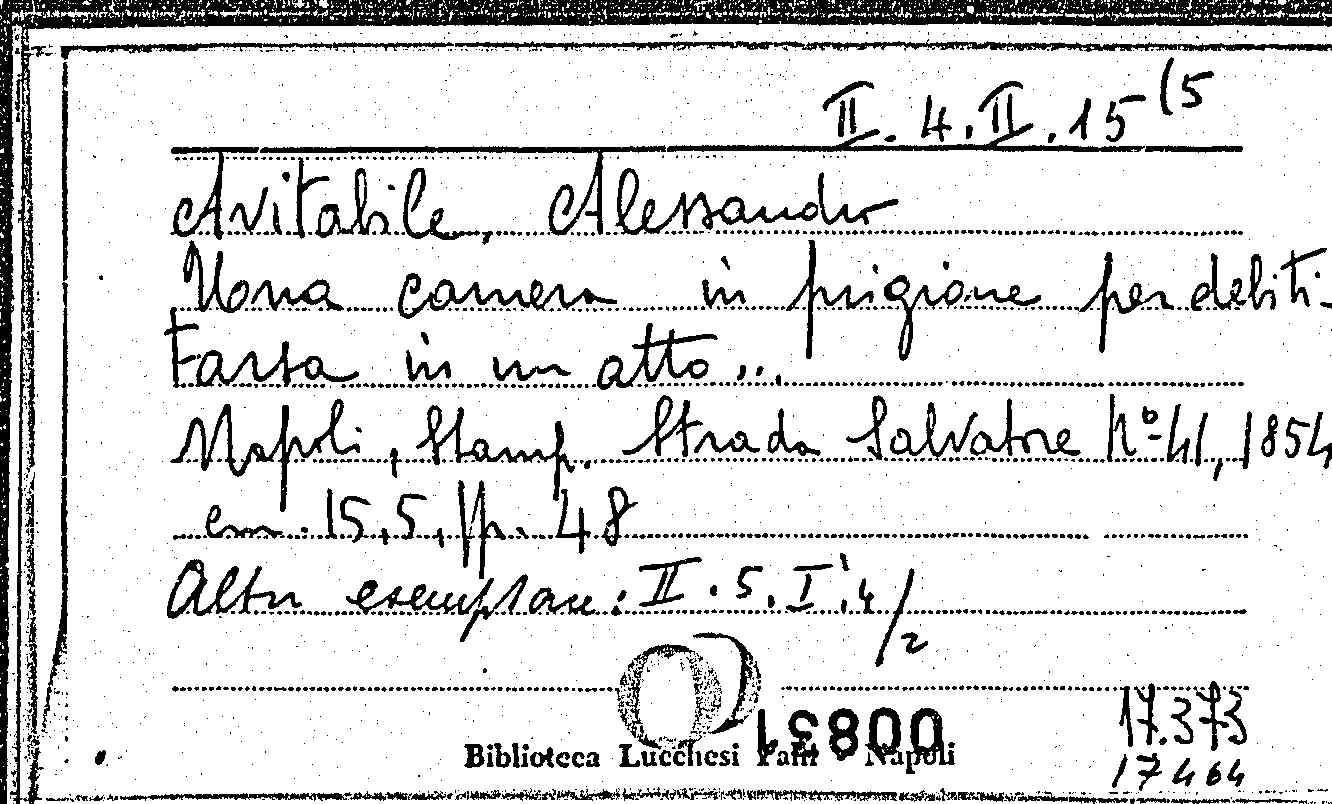 II. 4. II. 15 (5
Avitabile, Alessandro
Una camera in prigione per debiti-
Farsa in un atto...
Napoli, Stamp. Strada Salvatore N°-41, 1854
cm. 15,5, pp. 48
Altri esemplari: II. 5. I. 4/2
00831
Biblioteca Lucchesi Palli - Napoli
17.373
17464